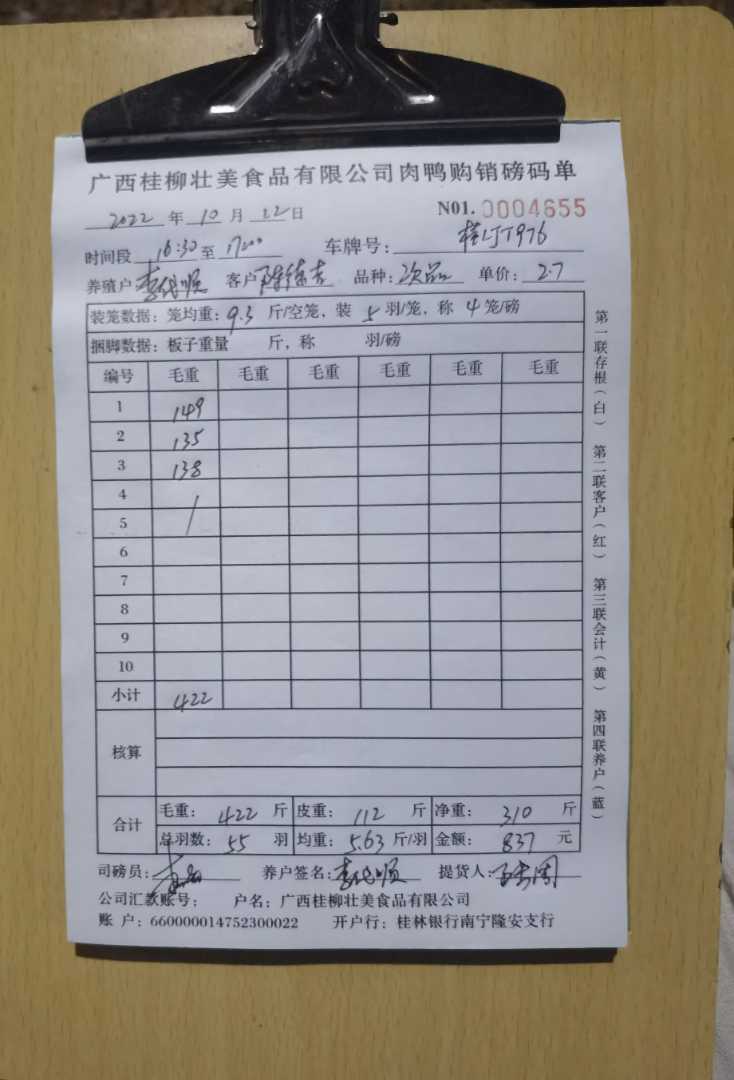 广西桂柳壮美食品有限公司肉鸭购销磅码单
2022 年 10 月 12 日 N01. 0004655
时间段 16:30 至 17:00 车牌号: 桂J J1976
养殖户 李代顺 客户 品种: 次品 单价: 2.7
装笼数据: 笼均重: 9.3 斤/空笼, 装 5 羽/笼, 称 4 笼/磅
捆脚数据: 板子重量 斤, 称 羽/磅
编号 毛重 毛重 毛重 毛重 毛重 毛重
1 149
2 135
3 138
4
5
6
7
8
9
10
小计 422
核算
合计 毛重: 422 斤 皮重: 112 斤 净重: 310 斤
总羽数: 55 羽 均重: 5.63 斤/羽 金额: 837 元
司磅员: 养户签名: 李代顺 提货人:
公司汇款账号: 户名: 广西桂柳壮美食品有限公司
账 户: 660000014752300022 开户行: 桂林银行南宁隆安支行
第一联存根(白) 第二联客户(红) 第三联会计(黄) 第四联养户(蓝)